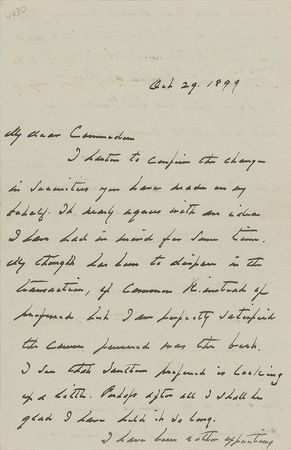 4030
Oct 29. 1899
My dear Commodore
I hasten to confirm the change
in securities you have made on my
behalf. It nearly agrees with an idea
I have had in mind for some time.
My thought has been to dispose in the
transaction, of Common instead of
preferred but I am perfectly satisfied
the course pursued was the best.
I see that Southern preferred is looking
up a little. Perhaps after all I shall be
glad I have held it so long.
I have been rather expecting